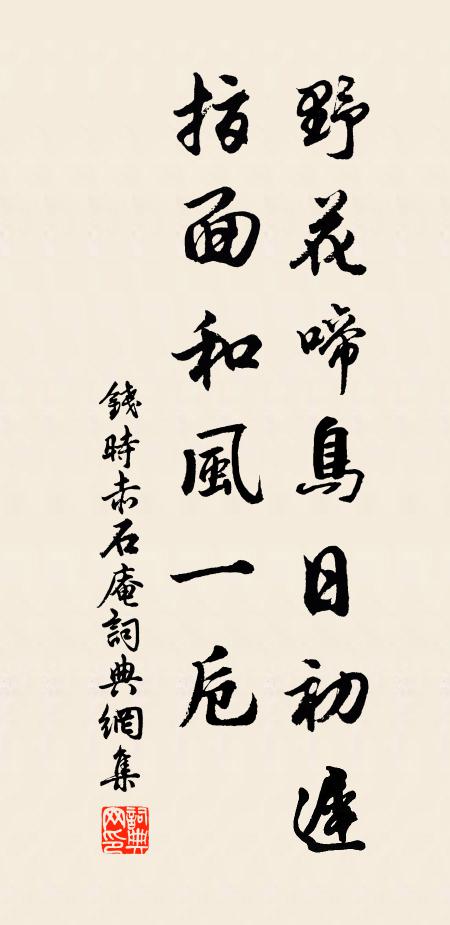 野花啼鳥日初遲
指面和風一卮
錢時赤石庵詞典網集
詞典网印